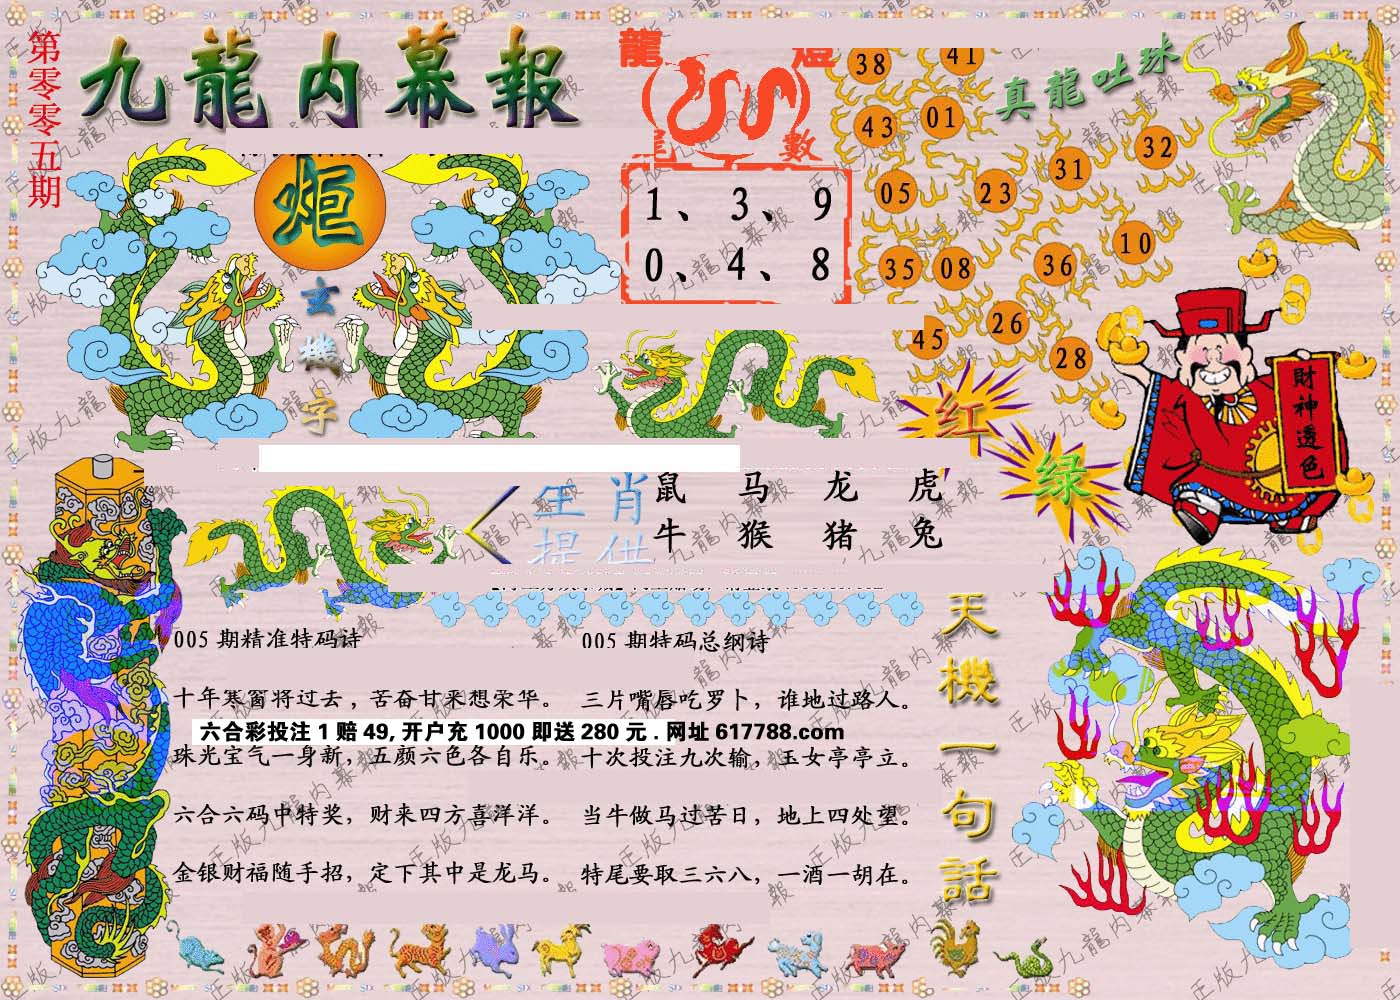 第零零五期
九龍内幕報
炬
玄機字
龍 燈
尾 數
1、3、9
0、4、8
真龍吐珠
38 41
43 01
05 23 31 32
35 08 36 10
45 26 28
红
绿
財神透色
生肖
提供
鼠 马 龙 虎
牛 猴 猪 兔
005 期精准特码诗
十年寒窗将过去，苦奋甘来想荣华。
珠光宝气一身新，五颜六色各自乐。
六合六码中特奖，财来四方喜洋洋。
金银财福随手招，定下其中是龙马。
005 期特码总纲诗
三片嘴唇吃罗卜，谁地过路人。
十次投注九次输，玉女亭亭立。
当牛做马过苦日，地上四处望。
特尾要取三六八，一酒一胡在。
六合彩投注 1 赔 49, 开户充 1000 即送 280 元 . 网址 617788.com
天機一句話
正版九龍内幕報